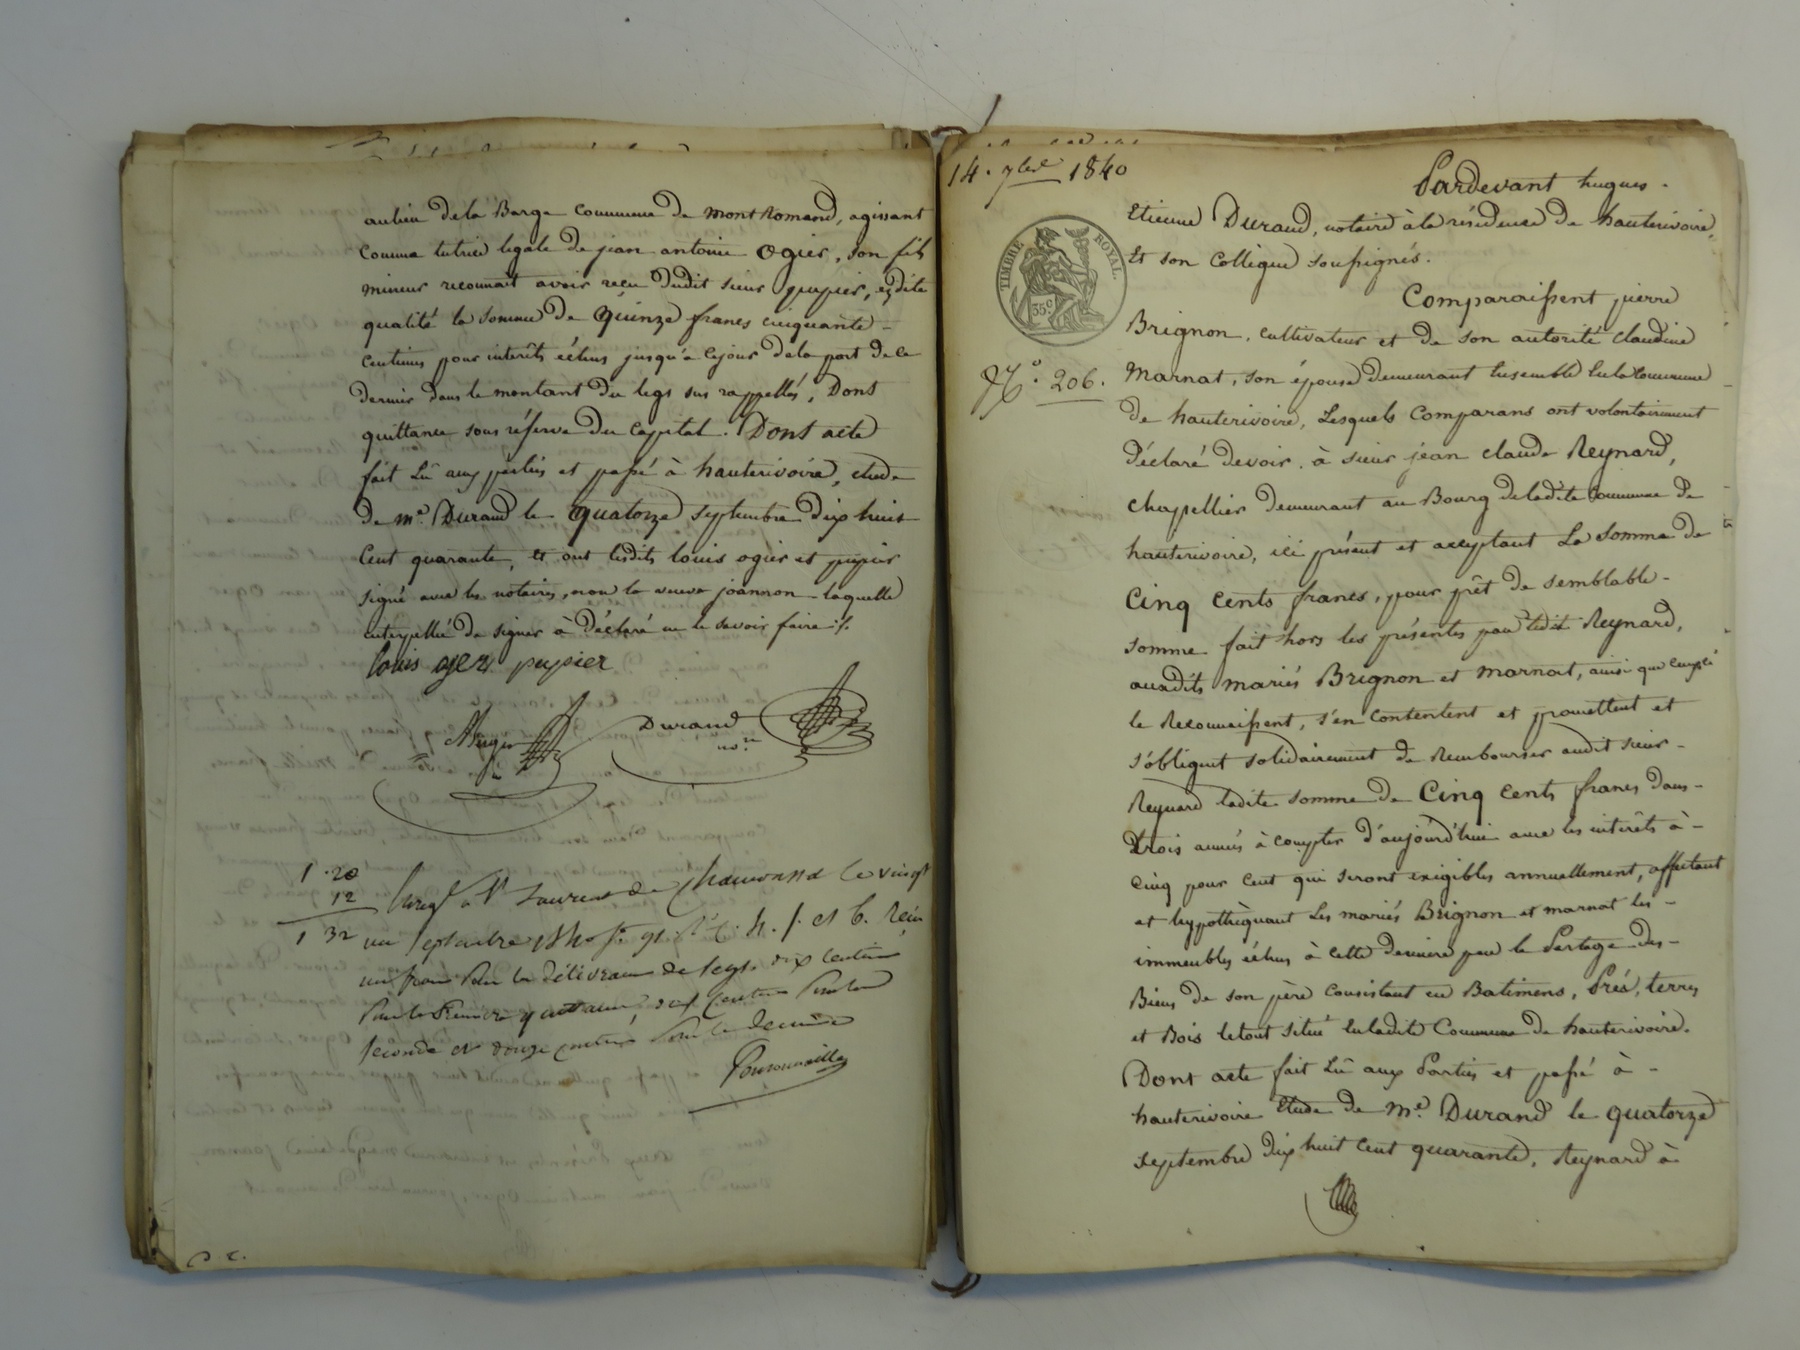 au lieu de la Barge commune de mont Romand, agissant
comme tutrice legale de jean antoine Ogier, son fils
mineur reconnait avoir reçu dudit sieur pupier, esdite
qualité la somme de quinze francs cinquante -
centimes pour interêts échus jusqu'à cejour dela part de ce
dernier dans le montant du legs sus rappellés, Dont
quittance sous réserve du capital. Dont acte
fait Lû aux parties et passé à hauterivoire, etude
de me. Durand le quatorze septembre dix huit
Cent quarante, et ont lesdits louis ogier et pupier
signé avec les notaires, non la veuve joannon - laquelle
enterpellée de signer à déclaré ne le savoir faire ./.
louis ogez pupier
Durand
nore
1 . 20
12
1 32
Enreg. à St Laurent de Chamousset le vingt
un septembre 1840 fo. 91 et 6. Reçu
un franc pour la délivrance de legs dix centimes
pour la premiere quittance, dix centimes pour la
seconde et douze centimes pour la derniere
14. 7bre 1840
Pardevant hugues -
Etienne Durand, notaire à la résidence de hauterivoire,
Et son Collègue soussignés.
TIMBRE ROYAL.
35c.
Comparaissent pierre
Brignon, cultivateur et de son autorité claudine
No. 206.
Marnat, son épouse demeurant Ensemble En la Commune
de hauterivoire, Lesquels Comparans ont volontairement
déclaré devoir à sieur jean claude Reynard,
chapellier demeurant au Bourg deladite Commune de
hauterivoire, ici présent et acceptant La somme de
Cinq Cents francs, pour prêt de semblable -
somme fait hors les présentes par ledit Reynard,
auxdits mariés Brignon et Marnat, ainsi que
le Reconnaissent, s'en Contentent et promettent et
s'obligent solidairement de Rembourser audit sieur -
Reynard ladite somme de Cinq Cents francs dans -
trois années à compter d'aujourd'hui avec les intérêts à -
Cinq pour Cent qui seront exigibles annuellement, affectant
et hypothèquant Les mariés Brignon et marnat les -
immeubles échus à cette derniere par le Partage des -
Biens de son père Consistant en Batimens, Prés, terres
et Bois letout situé En ladite Commune de hauterivoire.
Dont acte fait Lû aux Parties et passé à -
hauterivoire Etude de Me. Durand le quatorze
septembre dix huit Cent quarante, Reynard à